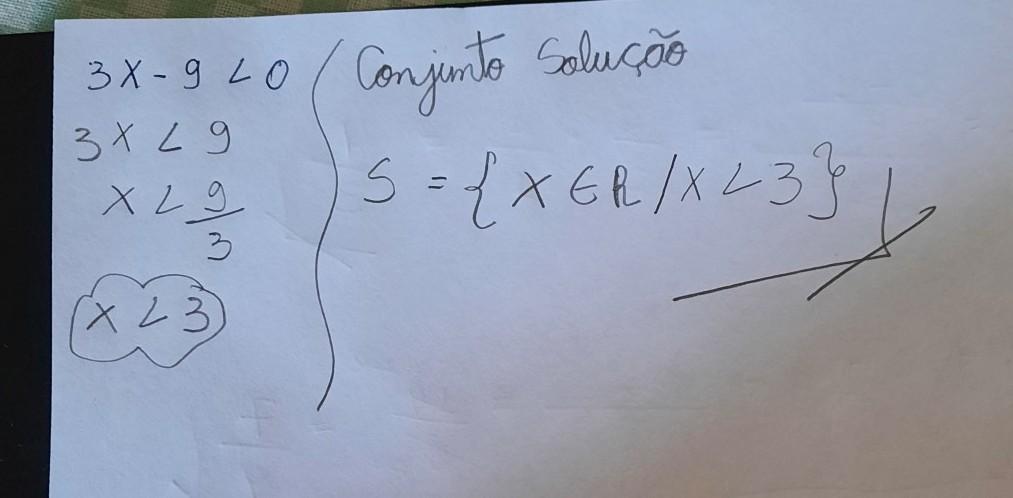 3x - 9 < 0
3x < 9
x < 9/3
x < 3
Conjunto Solução
S = {x ∈ R / x < 3}